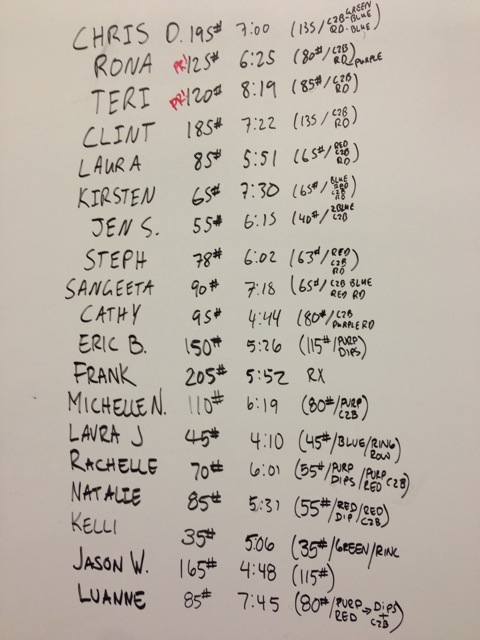 CHRIS D. 195# 7:00 (135/C2B-GREEN RD-BLUE-BLUE
RONA PR! 125# 6:25 (80#/C2B RD) PURPLE
TERI PR! 120# 8:19 (85#/C2B RD)
CLINT 185# 7:22 (135/C2B RD
LAURA 85# 5:51 (65#/RED C2B RD)
KIRSTEN 65# 7:30 (65#/BLUE RED C2B RD)
JEN S. 55# 6:15 (40#/2BLUE C2B)
STEPH 78# 6:02 (63#/RED C2B RD)
SANGEETA 90# 7:18 (65#/C2B BLUE RED RD
CATHY 95# 4:44 (80#/C2B PURPLE RD
ERIC B. 150# 5:26 (115#/PURP DIPS)
FRANK 205# 5:52 RX
MICHELLE N. 110# 6:19 (80#/PURP C2B)
LAURA J 45# 4:10 (45#/BLUE/RING ROW)
RACHELLE 70# 6:01 (55#/PURP DIPS/PURP RED C2B)
NATALIE 85# 5:31 (55#/RED DIP/RED C2B)
KELLI 35# 5:06 (35#/GREEN/RING
JASON W. 165# 4:48 (115#)
LUANNE 85# 7:45 (80#/PURP RED → DIPS + C2B)